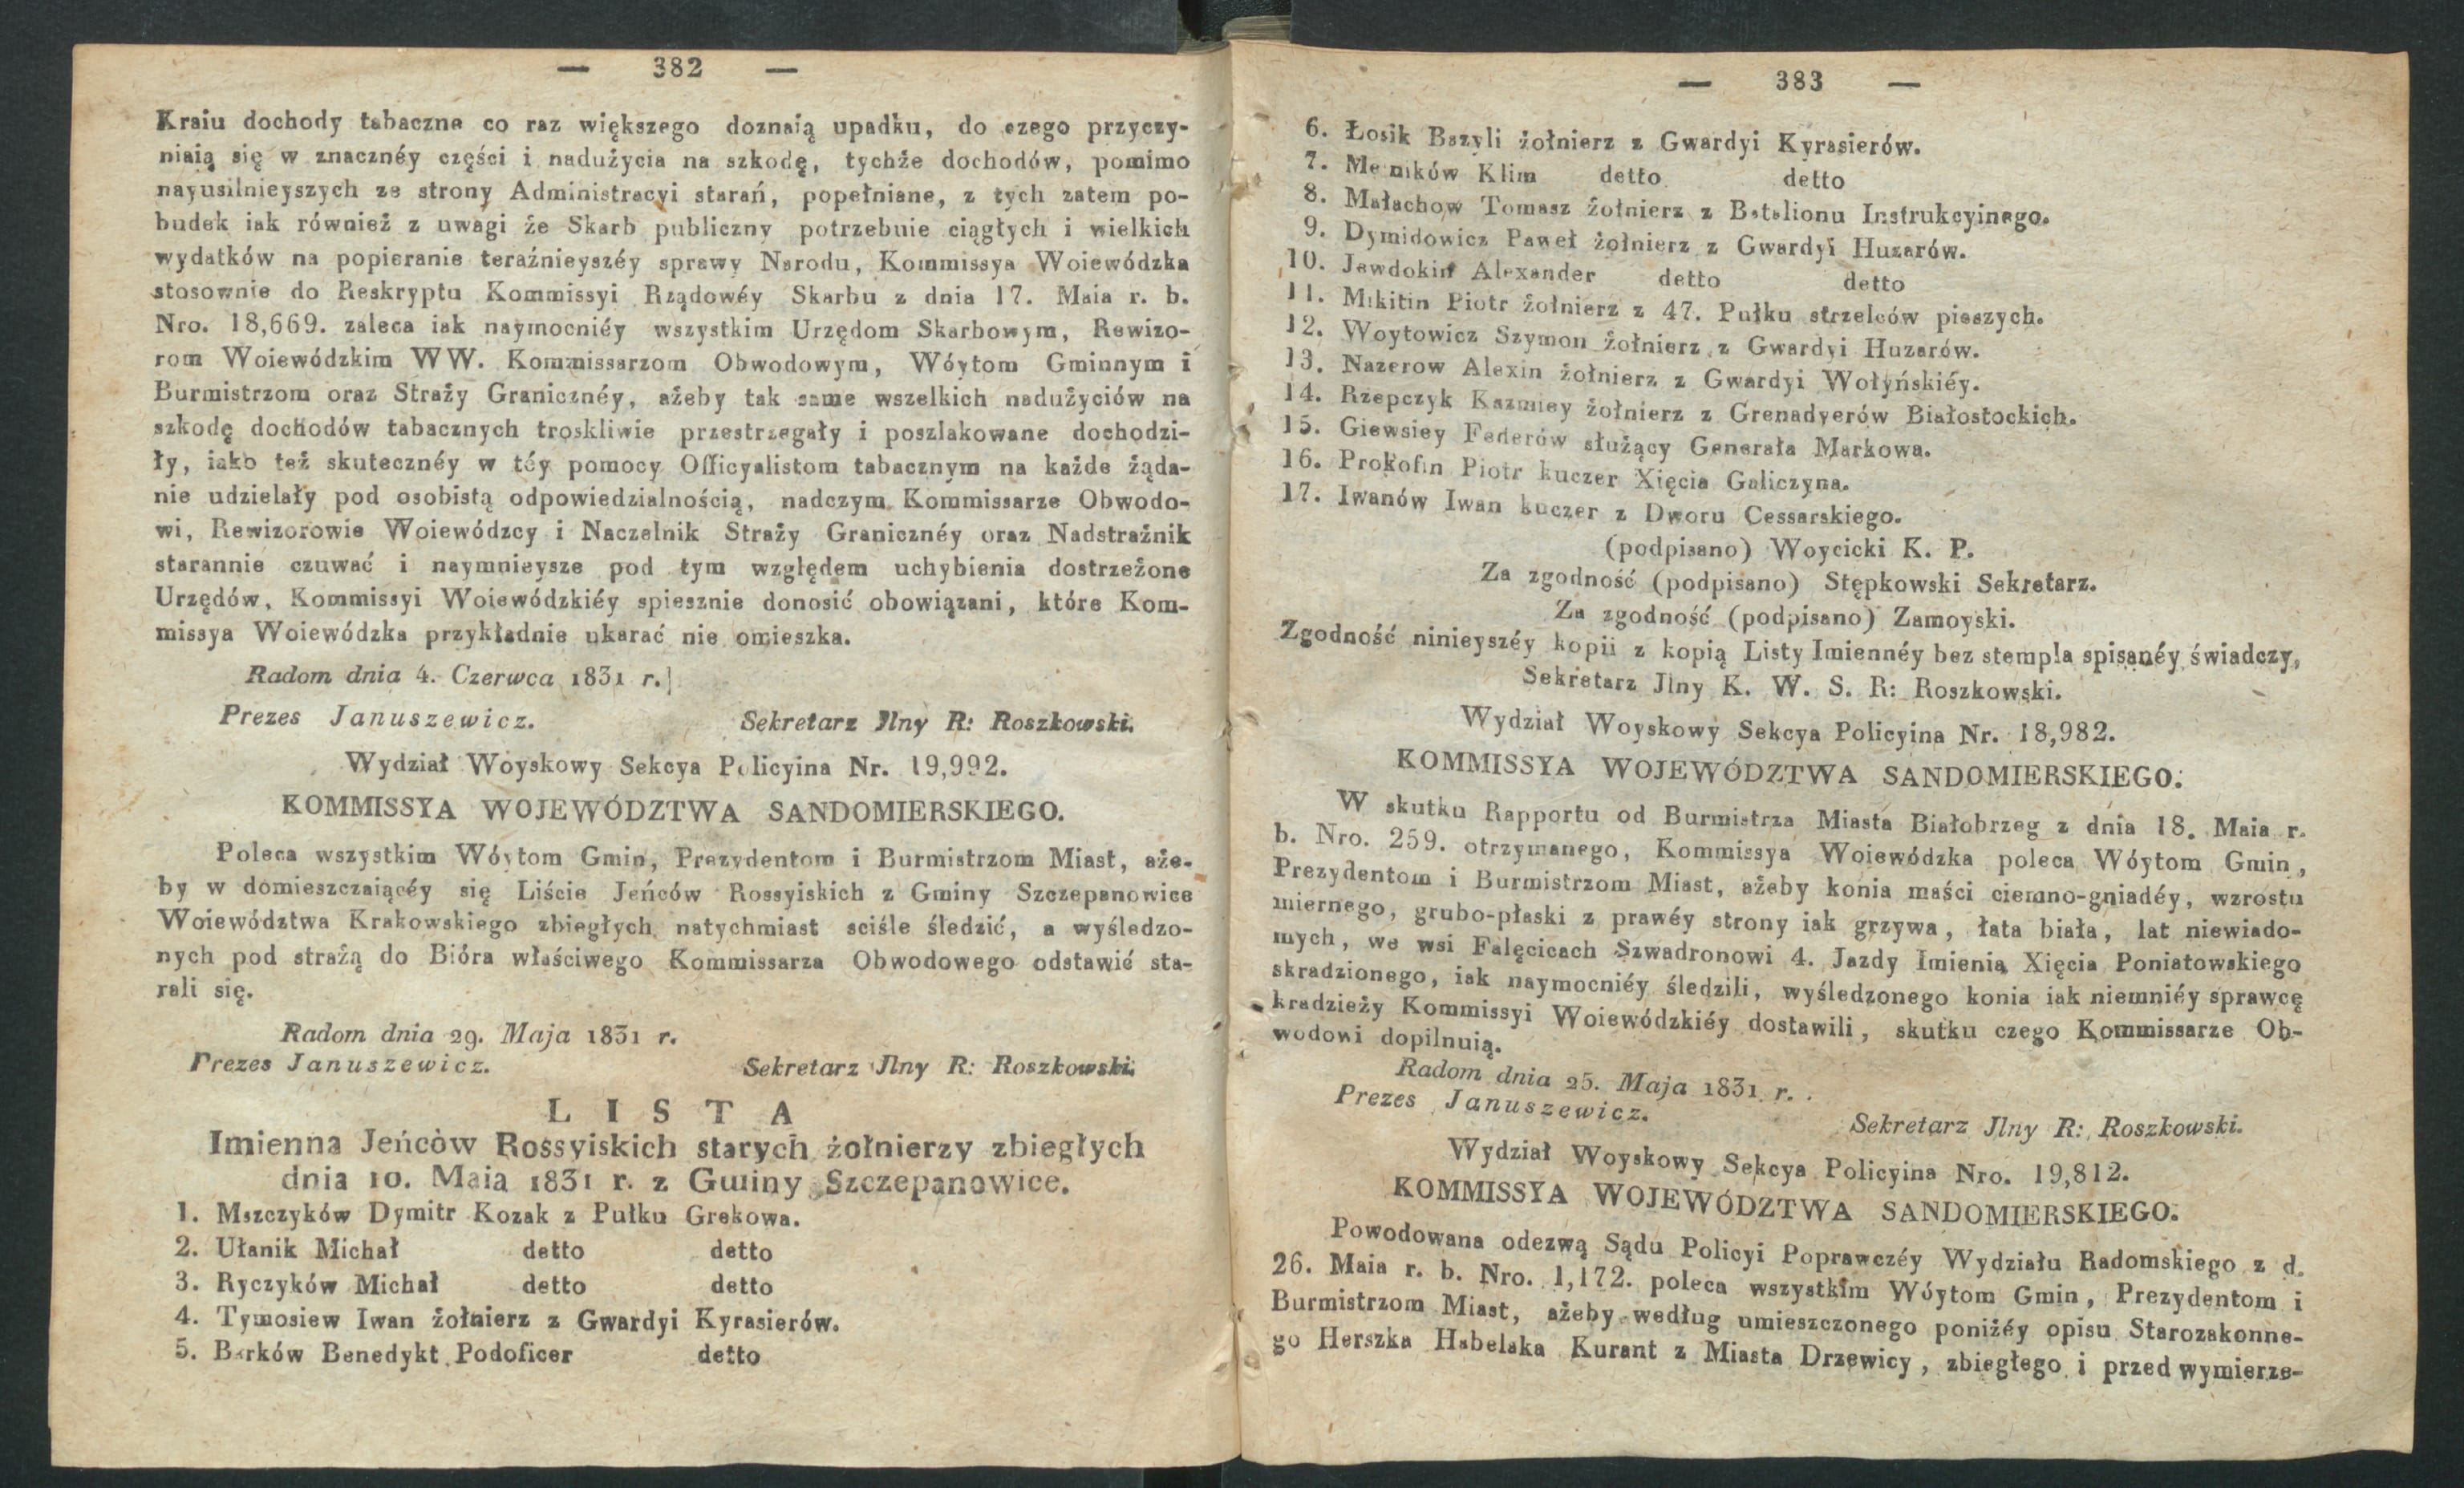 — 382 —
Kraiu dochody tabaczne co raz większego doznaią upadku, do czego przyczy-
niaią się w znacznéy części i nadużycia na szkodę, tychże dochodów, pomimo
nayusilnieyszych ze strony Administracyi starań, popełniane, z tych zatem po-
budek iak również z uwagi że Skarb publiczny potrzebuie ciągłych i wielkich
wydatków na popieranie teraźnieyszéy sprawy Narodu, Kommissya Woiewódzka
stosownie do Reskryptu Kommissyi Rządowéy Skarbu z dnia 17. Maia r. b.
Nro. 18,669. zaleca iak naymocniéy wszystkim Urzędom Skarbowym, Rewizo-
rom Woiewódzkim WW. Kommissarzom Obwodowym, Wóytom Gminnym i
Burmistrzom oraz Straży Granicznéy, ażeby tak same wszelkich nadużyciów na
szkodę dochodów tabacznych troskliwie przestrzegały i poszlakowane dochodzi-
ły, iako też skutecznéy w téy pomocy Officyalistom tabacznym na każde żąda-
nie udzielały pod osobistą odpowiedzialnością, nadczym Kommissarze Obwodo-
wi, Rewizorowie Woiewódzcy i Naczelnik Straży Granicznéy oraz Nadstrażnik
starannie czuwać i naymnieysze pod tym względem uchybienia dostrzeżone
Urzędów, Kommissyi Woiewódzkiéy spiesznie donosić obowiązani, które Kom-
missya Woiewódzka przykładnie ukarać nie omieszka.
Radom dnia 4. Czerwca 1831 r.
Prezes Januszewicz. Sekretarz Jlny R: Roszkowski.
Wydział Woyskowy Sekcya Policyina Nr. 19,992.
KOMMISSYA WOJEWÓDZTWA SANDOMIERSKIEGO.
Poleca wszystkim Wóytom Gmin, Prezydentom i Burmistrzom Miast, aże-
by w domieszczaiącéy się Liście Jeńców Rossyiskich z Gminy Szczepanowice
Woiewództwa Krakowskiego zbiegłych, natychmiast sciśle śledzić, a wyśledzo-
nych pod strażą do Bióra właściwego Kommissarza Obwodowego odstawić sta-
rali się.
Radom dnia 29. Maja 1831 r.
Prezes Januszewicz. Sekretarz Jlny R: Roszkowski.
LISTA
Imienna Jeńców Rossyiskich starych żołnierzy zbiegłych
dnia 10. Maia 1831 r. z Gminy Szczepanowice.
1. Mszczyków Dymitr Kozak z Pułku Grekowa.
2. Ułanik Michał detto detto
3. Ryczyków Michał detto detto
4. Tymosiew Iwan żołnierz z Gwardyi Kyrasierów.
5. Barków Benedykt Podoficer detto
— 383 —
6. Łosik Bazyli żołnierz z Gwardyi Kyrasierów.
7. Melników Klim detto detto
8. Małachow Tomasz żołnierz z Batalionu Instrukcyinego.
9. Dymidowicz Paweł żołnierz z Gwardyi Huzarów.
10. Jewdokin Alexander detto detto
11. Mikitin Piotr żołnierz z 47. Pułku strzelców pieszych.
12. Woytowicz Szymon żołnierz z Gwardyi Huzarów.
13. Nazerow Alexin żołnierz z Gwardyi Wołyńskiéy.
14. Rzepczyk Kazmiey żołnierz z Grenadyerów Białostockich.
15. Giewsiey Federów służący Generała Markowa.
16. Prokofin Piotr kuczer Xięcia Galiczyna.
17. Iwanów Iwan kuczer z Dworu Cessarskiego.
(podpisano) Woycicki K. P.
Za zgodność (podpisano) Stępkowski Sekretarz.
Za zgodność (podpisano) Zamoyski.
Zgodność ninieyszéy kopii z kopią Listy Imiennéy bez stempla spisanéy świadczy,
Sekretarz Jlny K. W. S. R: Roszkowski.
Wydział Woyskowy Sekcya Policyina Nr. 18,982.
KOMMISSYA WOJEWÓDZTWA SANDOMIERSKIEGO.
W skutku Rapportu od Burmistrza Miasta Białobrzeg z dnia 18. Maia r.
b. Nro. 259. otrzymanego, Kommissya Woiewódzka poleca Wóytom Gmin,
Prezydentom i Burmistrzom Miast, ażeby konia maści ciemno-gniadéy, wzrostu
miernego, grubo-płaski z prawéy strony iak grzywa, łata biała, lat niewiado-
mych, we wsi Falęcicach Szwadronowi 4. Jazdy Imienia Xięcia Poniatowskiego
skradzionego, iak naymocniéy śledzili, wyśledzonego konia iak niemniéy sprawcę
kradzieży Kommissyi Woiewódzkiéy dostawili, skutku czego Kommissarze Ob-
wodowi dopilnuią.
Radom dnia 25. Maja 1831 r.
Prezes Januszewicz. Sekretarz Jlny R: Roszkowski.
Wydział Woyskowy Sekcya Policyina Nro. 19,812.
KOMMISSYA WOJEWÓDZTWA SANDOMIERSKIEGO.
Powodowana odezwą Sądu Policyi Poprawczéy Wydziału Radomskiego z d.
26. Maia r. b. Nro. 1,172. poleca wszystkim Wóytom Gmin, Prezydentom i
Burmistrzom Miast, ażeby według umieszczonego poniżéy opisu Starozakonne-
go Herszka Habelska Kurant z Miasta Drzewicy, zbiegłego i przed wymierze-